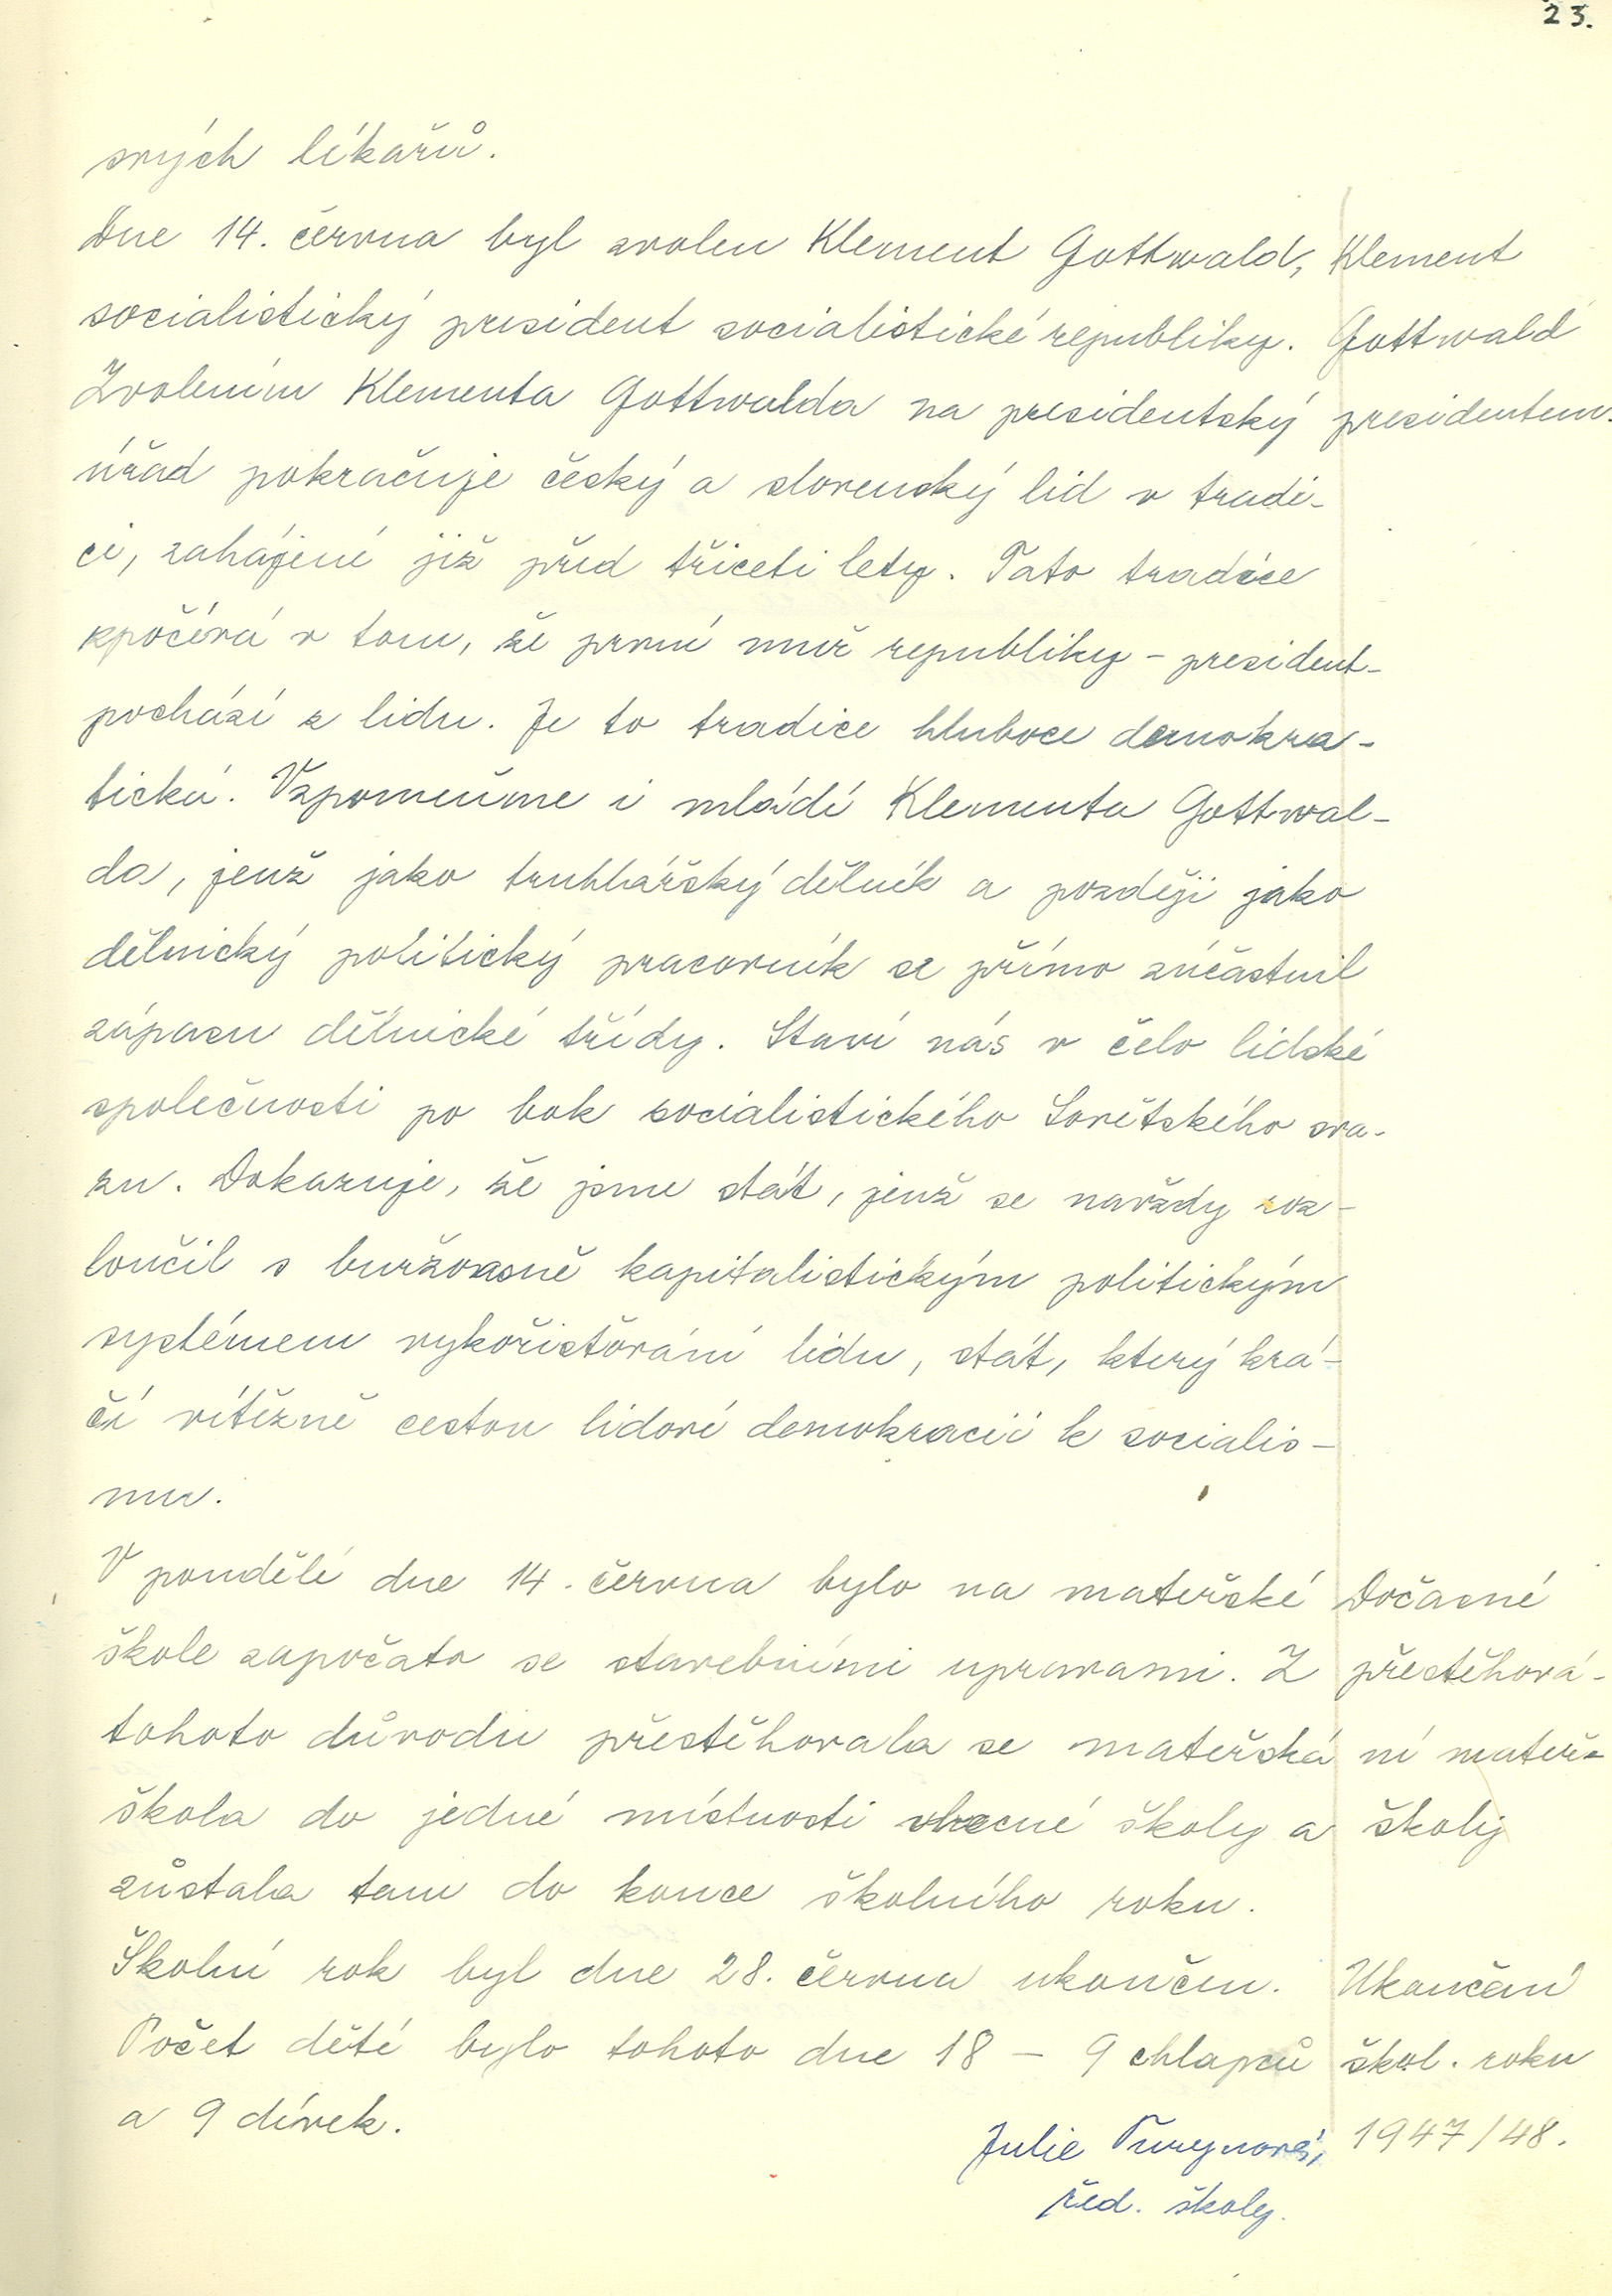 23.
svých lékařů.
Dne 14. června byl zvolen Klement Gottwald, Klement
socialistický president socialistické republiky. Gottwald
Zvolením Klementa Gottwalda na presidentský presidentem.
úřad pokračuje český a slovenský lid v tradi-
ci, zahájené již před třiceti lety. Tato tradice
spočívá v tom, že první muž republiky - president-
pochází z lidu. Je to tradice hluboce demokra-
tická. Vzpomeňme i mládí Klementa Gottwal-
da, jenž jako truhlářský dělník a později jako
dělnický politický pracovník se přímo zúčastnil
zápasu dělnické třídy. Staví nás v čelo lidské
společnosti po bok socialistického Sovětského sva-
zu. Dokazuje, že jsme stát, jenž se navždy roz-
loučil s buržoasně kapitalistickým politickým
systémem vykořisťování lidu, stát, který krá-
čí vítězně cestou lidové demokracii k socialis-
mu.
V pondělí dne 14. června bylo na mateřské Dočasné
škole započato se stavebními upravami. Z přestěhová-
tohoto důvodu přestěhovala se mateřská ní mateř-
škola do jedné místnosti obecné školy a školy
zůstala tam do konce školního roku.
Školní rok byl dne 28. června ukončen. Ukončení
Počet dětí bylo tohoto dne 18 - 9 chlapců škol. roku
a 9 dívek. 1947/48.
Julie
řed. školy.